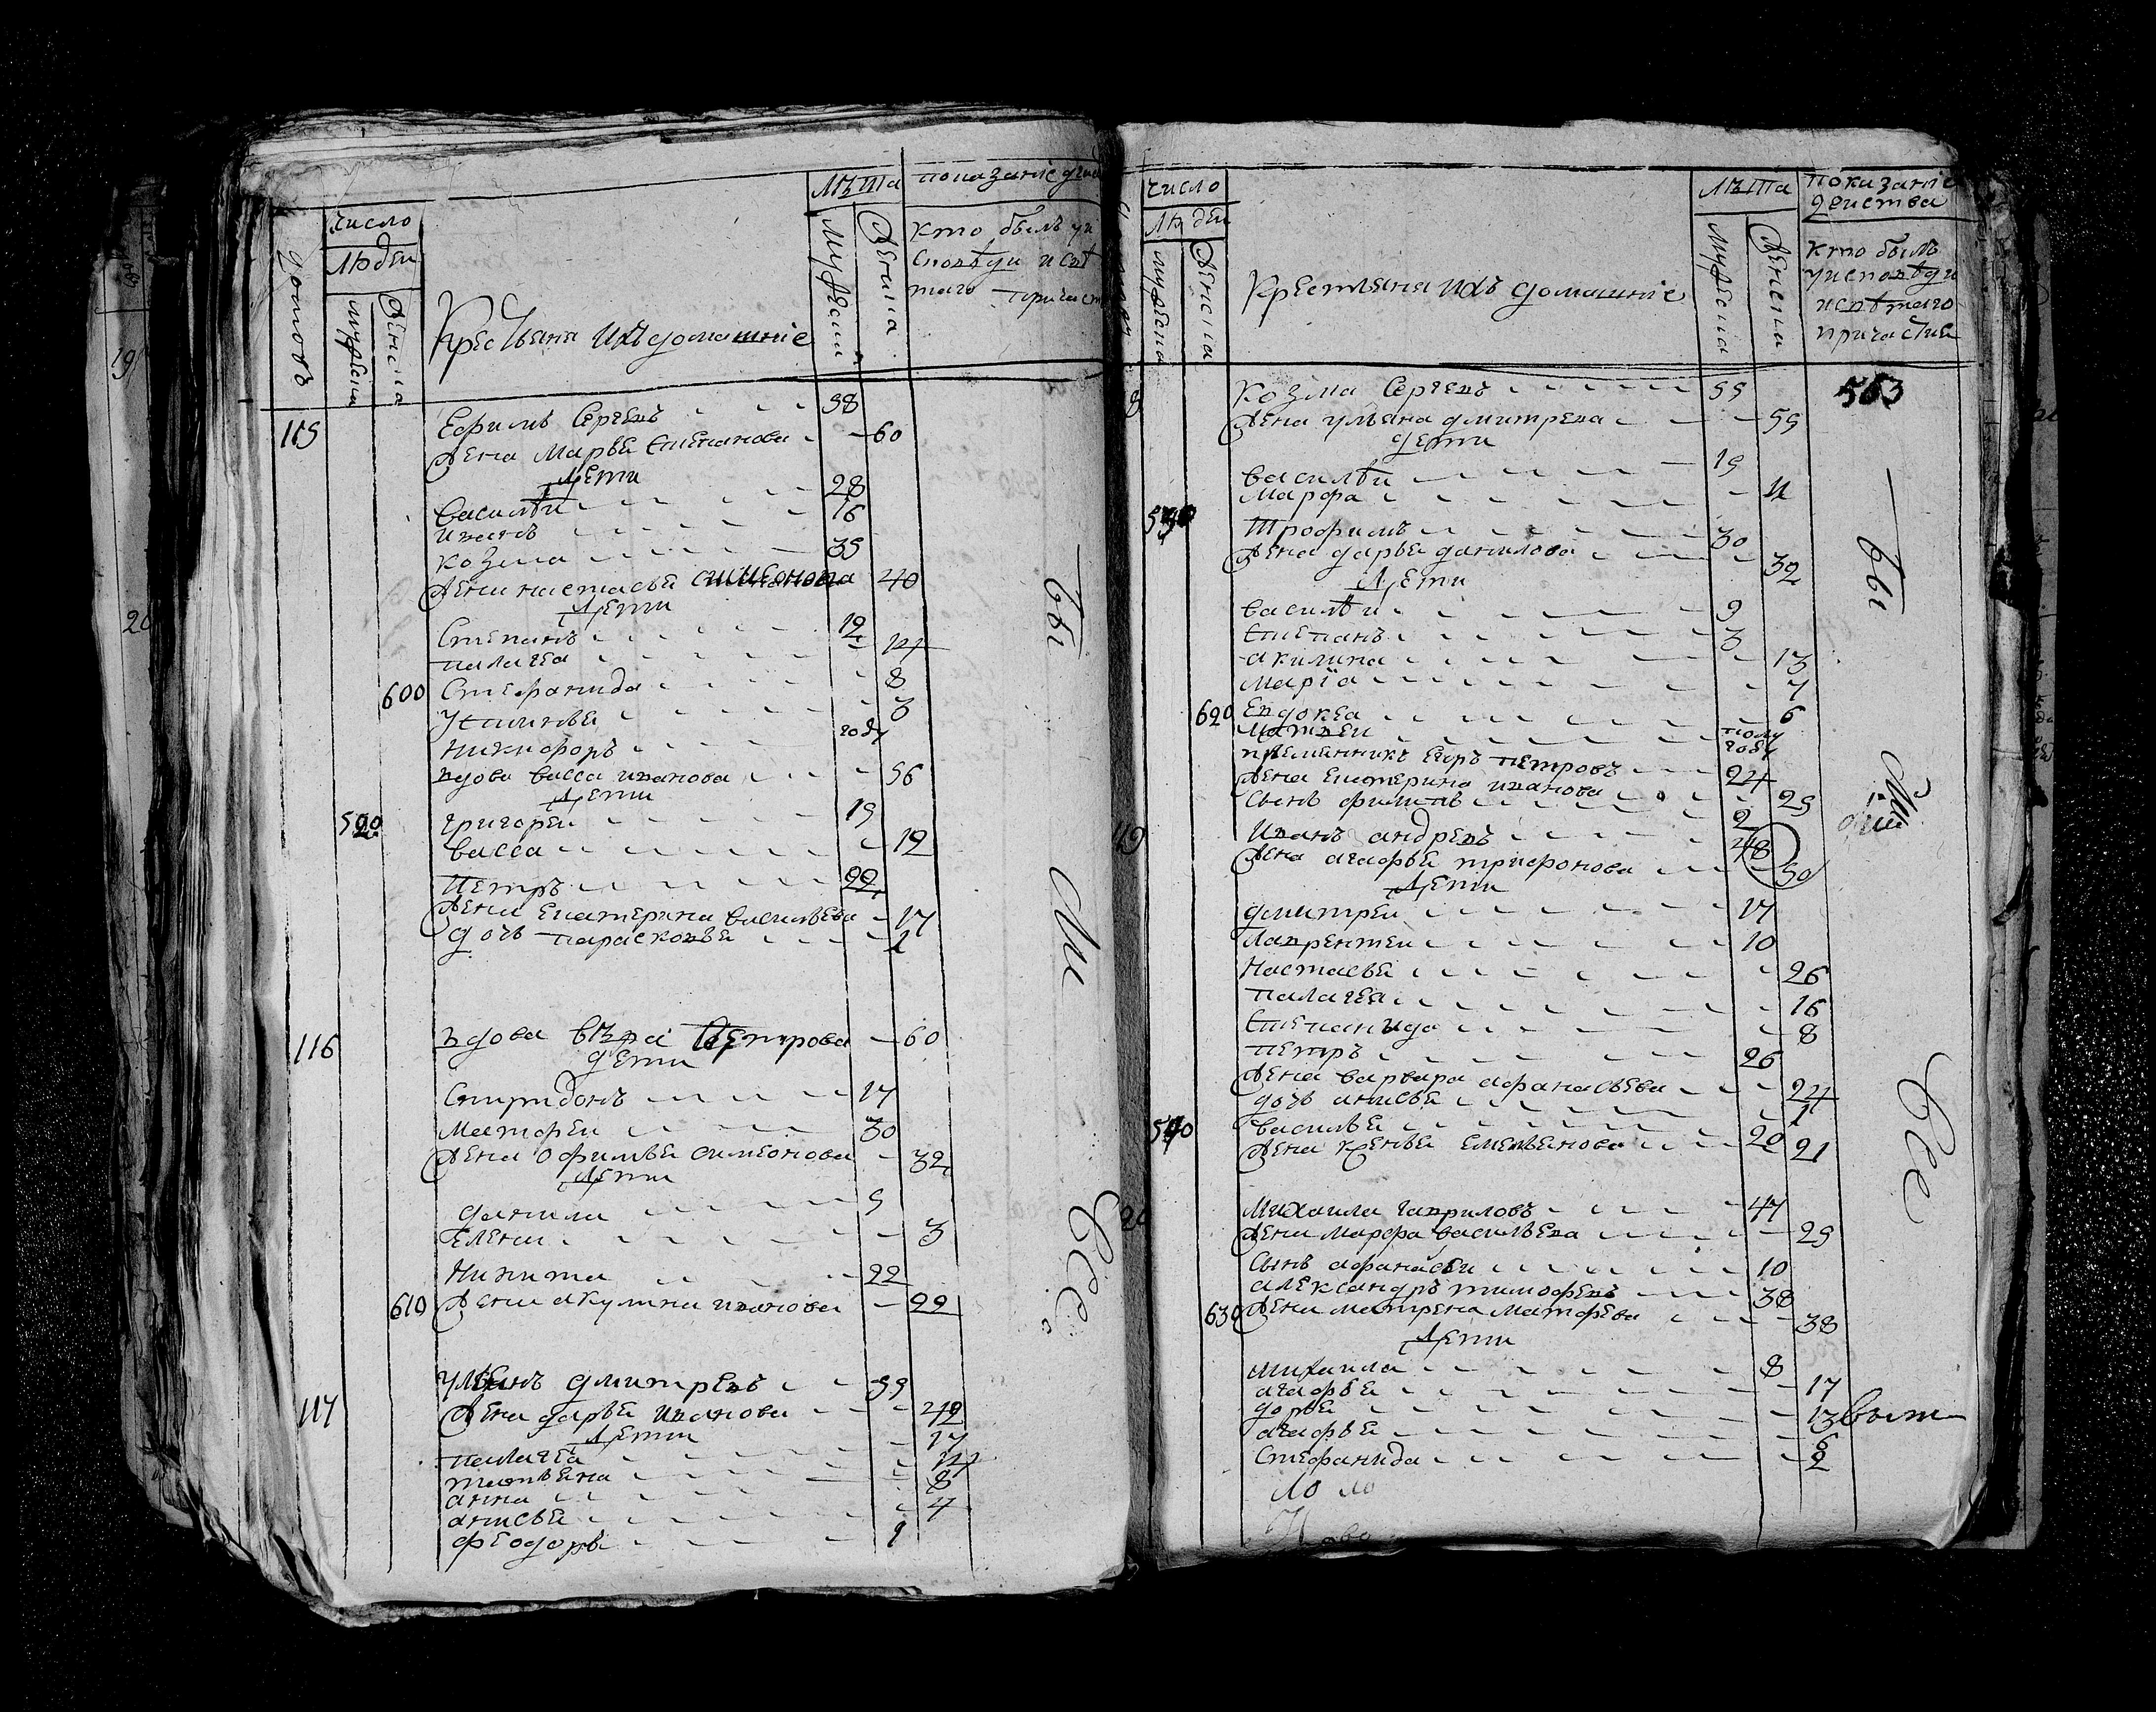 домовъ
число
людей
мужеска
женска
Крестьяня ихъ домашніе
лѣта
мужеска
женска
показаніе дѣис
кто былъ уи
сповѣди и свѣ
таго причаст
115
Ефимъ Сергеевъ 58
Жена Марѳа Степанова 60
Дети
Василѣи 28
Иванъ 16
Козма 35
Жена настасья симеонова 40
Дети
Степанъ 12
палагея 14
600 Стефанида 8
Устинья 3
Никифоръ году
вдова васса иванова 56
Дети
520 григорей 15
васса 12
Петръ 22
Жена екатерина васильева 17
дочь парасковья 1
116 вдова вѣра Петрова 60
дети
Спиридонъ 17
Матфеи 30
Жена офимья симеонова 32
Дети
данила 5
Елена 3
Никита 22
610 Жена акулина иванова 22
117 ульянъ дмитревъ 39
Жена дарья иванова 42
Дети
палагея 17
татьяна 14
анна 8
анисья 4
феодоръ 1
бы
ли
все
число
людеи
мужеска
женска
Крестьяня ихъ домашніе
лѣта
мужеска
женска
показаніе
деиства
кто былъ
уисповѣди
исвѣтаго
причастия
563
Козма Сергевъ 55
Жена ульяна дмитрева 55
дети
василѣи 15
марфа 11
530 Трофимъ 30
Жена дарья данилова 32
Дети
василѣи 9
Степанъ 3
акилина 13
Марїа 7
620 Евдокея 6
Матвеи полу году
племянникъ егоръ петровъ 24
Жена екатерина иванова 25
Сынъ филипъ 2
19 Иванъ андревъ 48
Жена агафья трифонова 50
Дети
дмитреи 17
Лаврентеи 10
Настасья 26
палагея 16
Степанида 8
петръ 26
Жена варвара афанасьева 24
дочь анисья 1
540 василеи 20
Жена ксенья емельянова 21
20 Михаила гавриловъ 47
Жена марфа васильева 25
Сынъ афанасеи 10
александръ тимофевъ 38
630 Жена матрена матфева 38
Дети
михаила 8
агафья 17
дарья 13
агафья 6
Стефанида 2
бы
ли
все